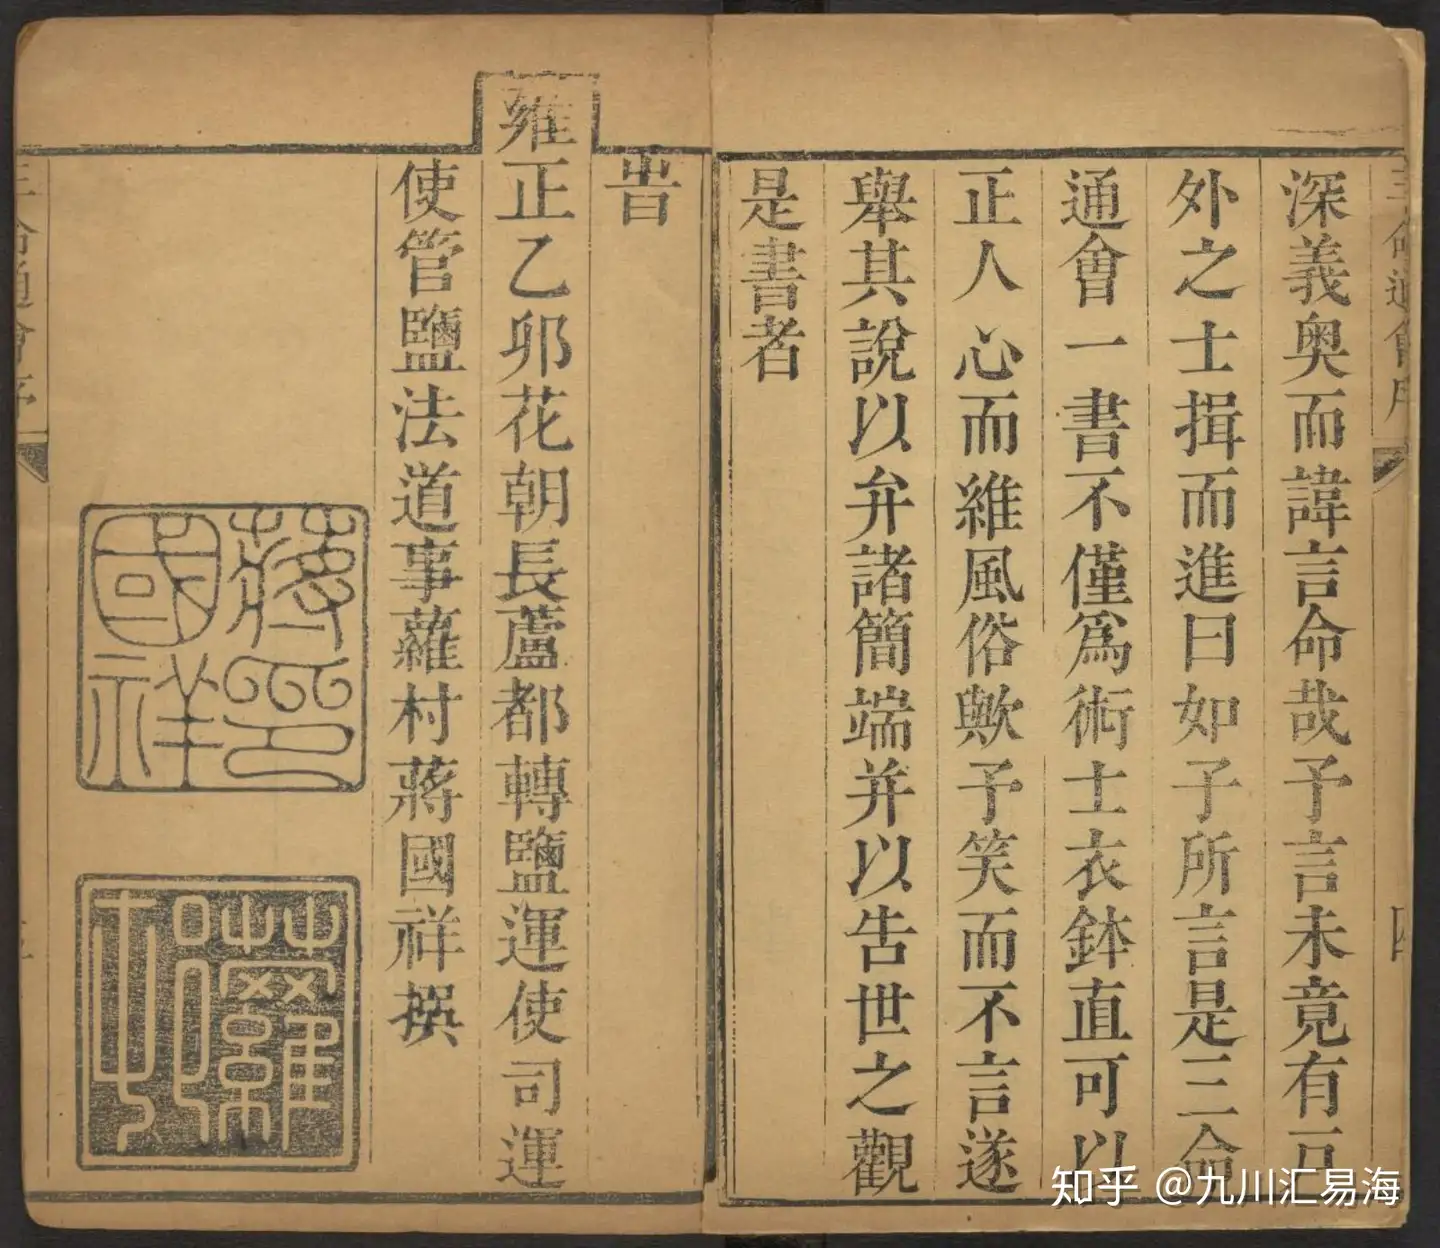 三命通會序
四
深義奥而諱言命哉予言未竟有方
外之士揖而進曰如子所言是三命
通會一書不僅爲術士衣鉢直可以
正人心而維風俗歟予笑而不言遂
舉其說以弁諸簡端并以告世之觀
是書者
旹
雍正乙卯花朝長蘆都轉鹽運使司運
使管鹽法道事蘿村蔣國祥撰
蔣印
國祥
蘿
村
三命通會序
知乎 @九川汇易海